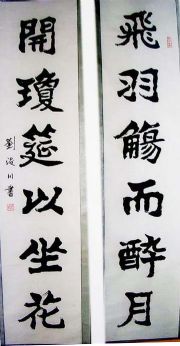 飛羽觴而醉月
開瓊筵以坐花
劉浚川書